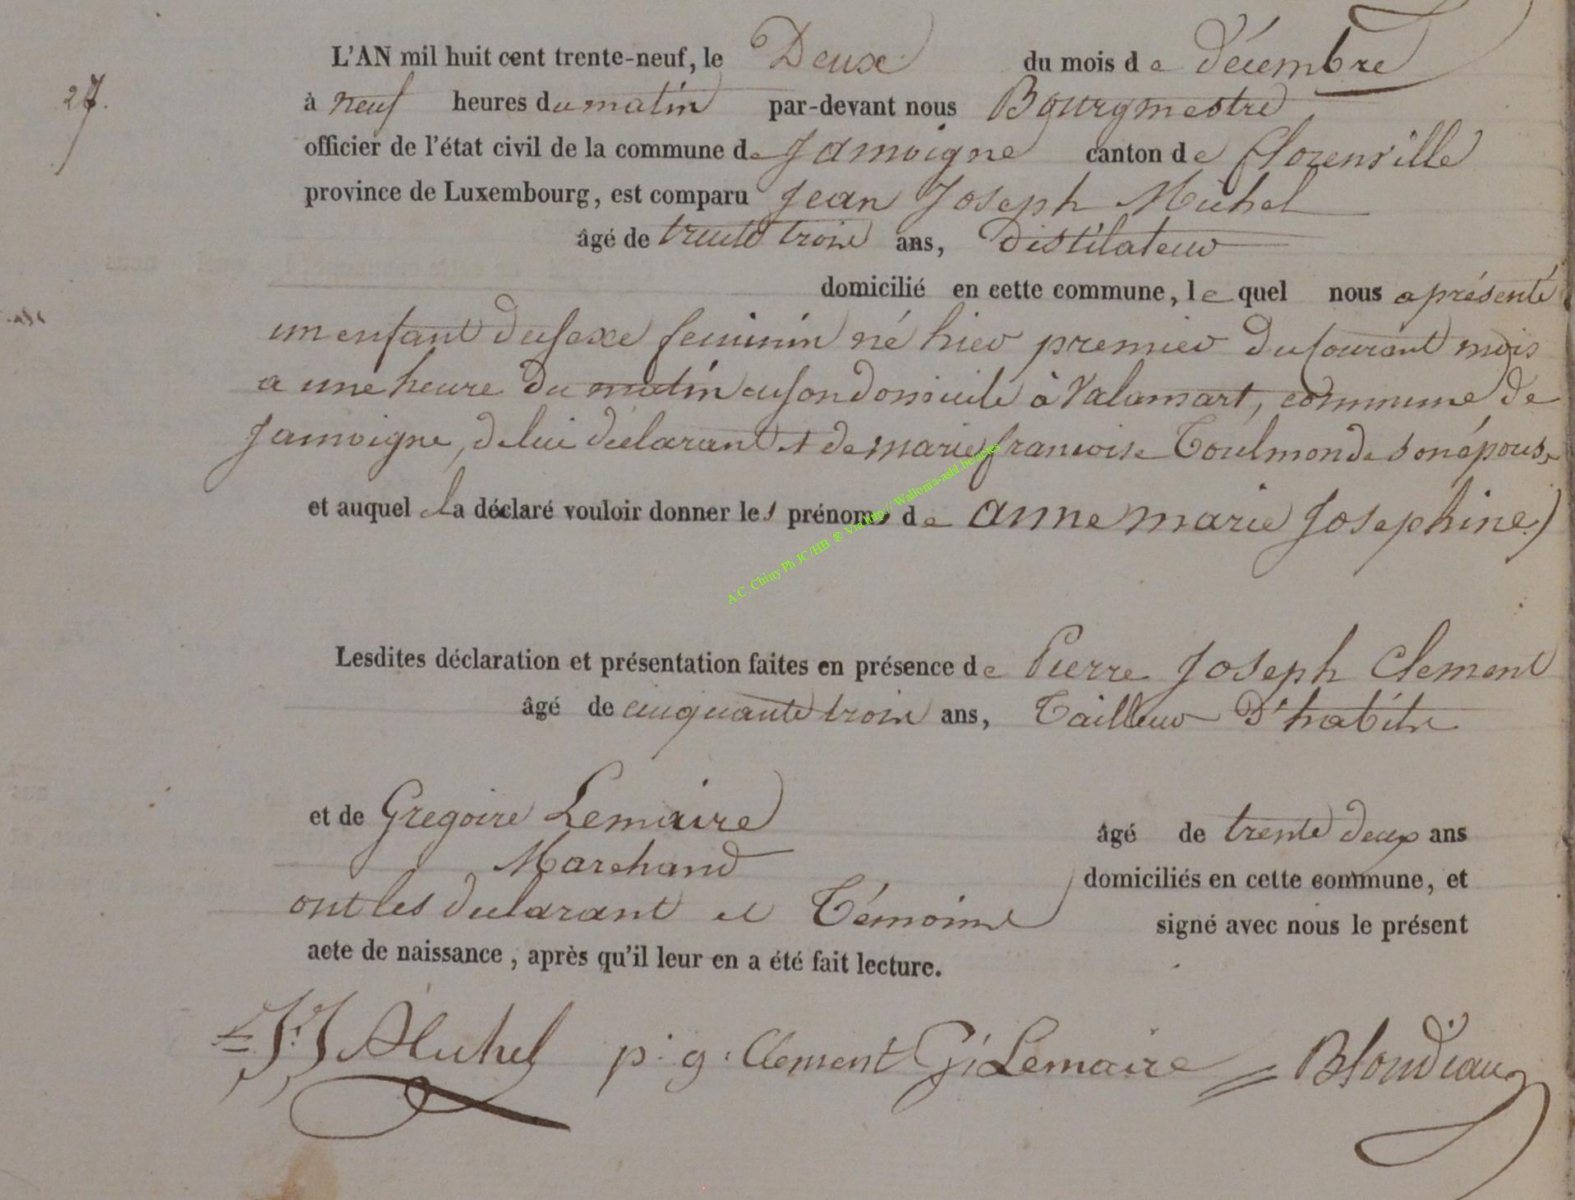 L'AN mil huit cent trente-neuf, le Deux du mois de décembre
27.
à neuf heures du matin par-devant nous Bourgmestre
officier de l'état civil de la commune de Jamoigne canton de florenville
province de Luxembourg, est comparu Jean Joseph Michel
âgé de trente trois ans, Distilateur
domicilié en cette commune, le quel nous a présenté
un enfant du sexe feminin né hier premier du courant mois
a une heure du matin en son domicile à Valansart, commune de
Jamoigne, de lui déclarant et de marie francoise Toulmonde son épouse
et auquel il a déclaré vouloir donner les prénoms de anne marie Josephine)
A.C. Chiny Ph JC/HB
Lesdites déclaration et présentation faites en présence de Pierre Joseph Clement
âgé de cinquante trois ans, Tailleur D'habits
et de Gregoire Lemaire âgé de trente deux ans
Marchand domiciliés en cette commune, et
ont les declarant et Témoins signé avec nous le présent
acte de naissance, après qu'il leur en a été fait lecture.
J. J Michel p. g. Clement G. Lemaire Blondiau